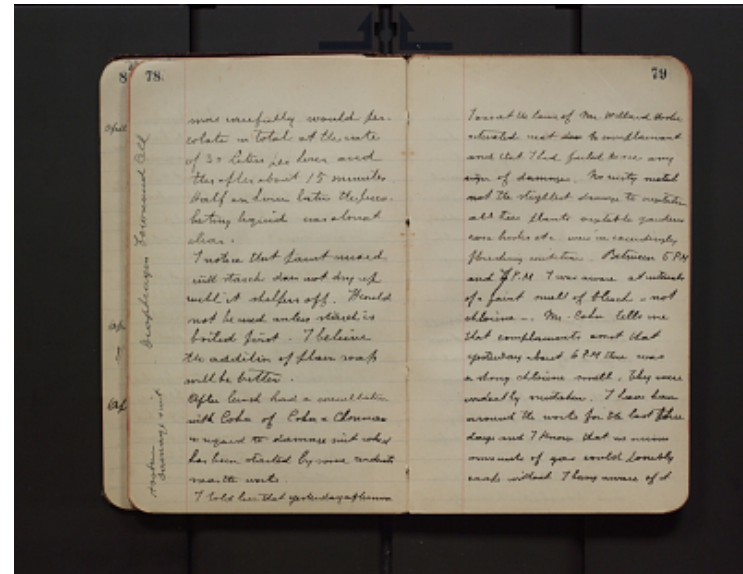 8
April
Ap
Ap
78
Diaphragm Townsend Cell
damage suit
more carefully would per-
colate in total at the rate
of 30 liters per hour and
this after about 15 minutes
Half an hour later the perco-
lating liquid was almost
clear.
I notice that paint mixed
with starch does not dry up
well it shelfers off. Should
not be used unless starch is
boiled first. I believe
the addition of plain soap
will be better.
After lunch had a consultation
with Cohn of Cohn & Chormann
in regard to damage suit which
has been started by some residents
near the works.
I told him that yesterday afternoon
79
I was at the house of Mr. Willard Hooker
situated next door to complainant
and that I had failed to see any
sign of damages. No rusty metal
not the slightest damage to vegetation
all trees plants vegetable gardens
were in exceedingly
flourishing condition. Between 5 PM
and 7 P.M I was aware at intervals
of a faint smell of bleach - not
chlorine -. Mr. Cohn tells me
that complainants assert that
yesterday about 6 P.M there was
a strong chlorine smell. They were
evidently mistaken. I have been
around the works for the last three
days and I know that no
amounts of gas could possibly
escape without I being aware of it